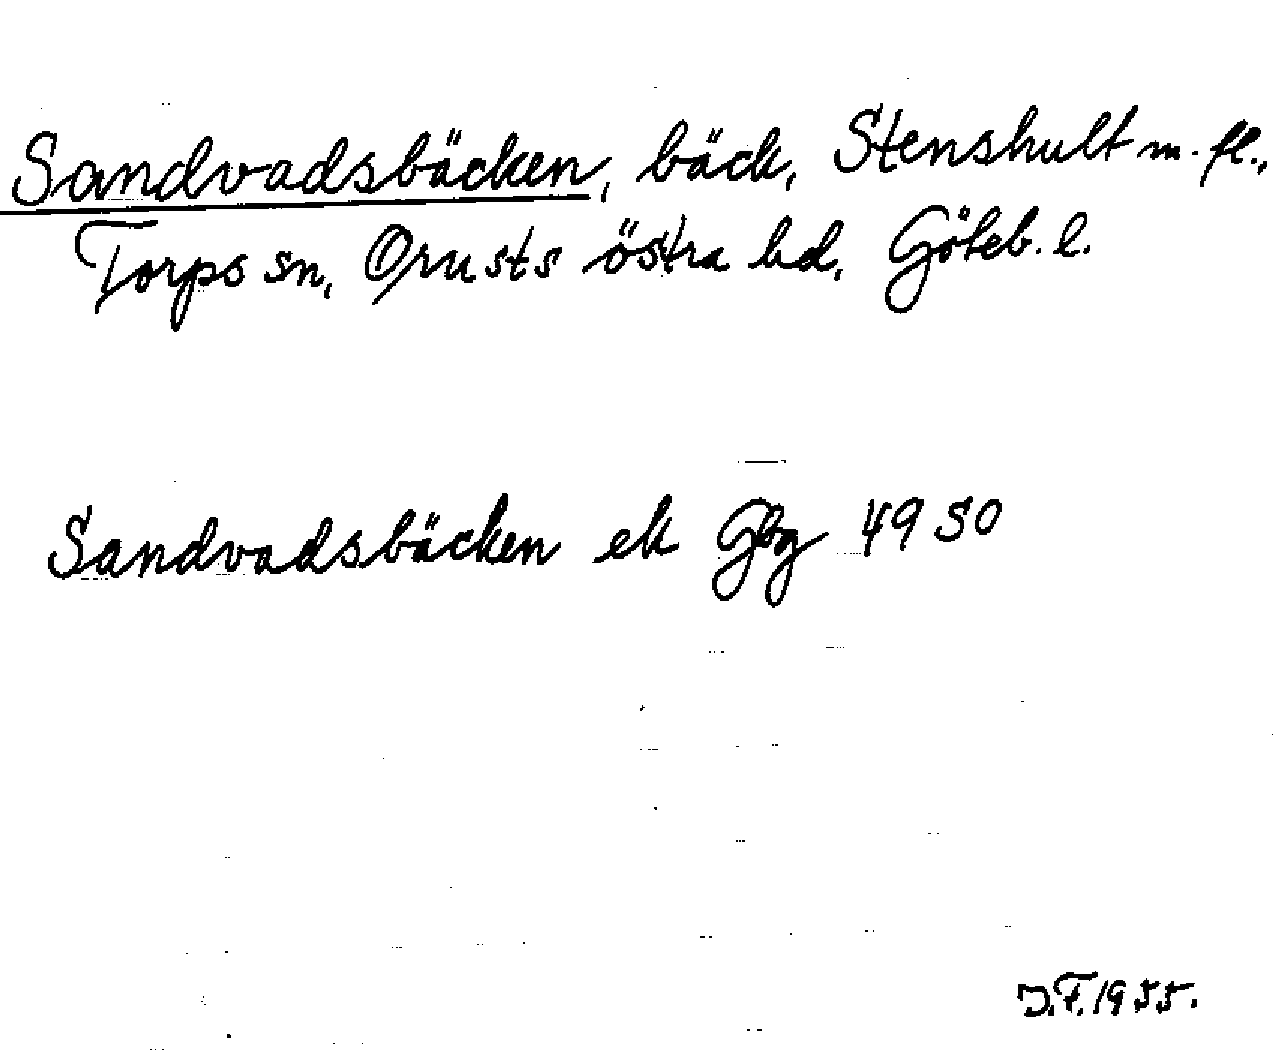 Sandvadsbäcken, bäck, Stenshult m. fl.,
Torps sn, Orusts östra hd, Göteb. l.
Sandvadsbäcken ek Gbg 4950
J.F. 1955.